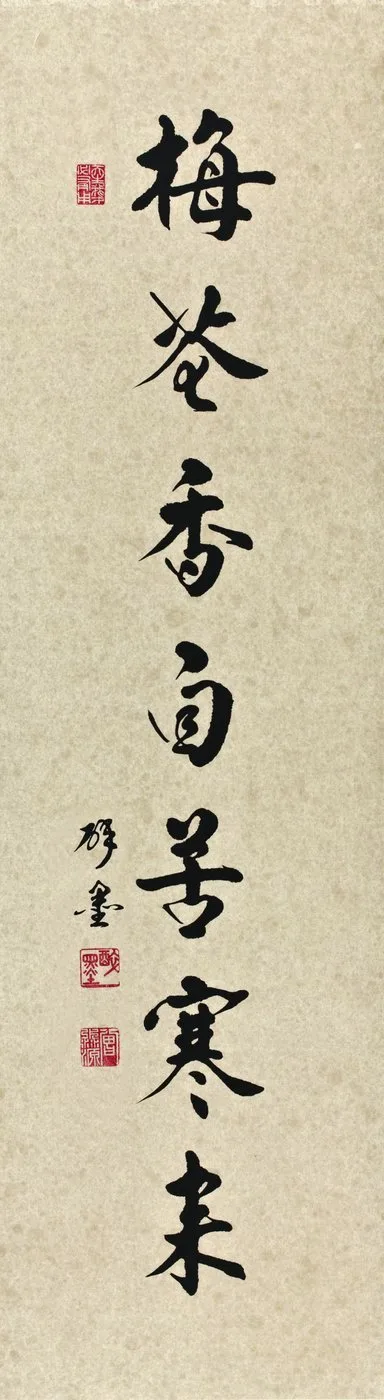 梅花香自苦寒来
墨